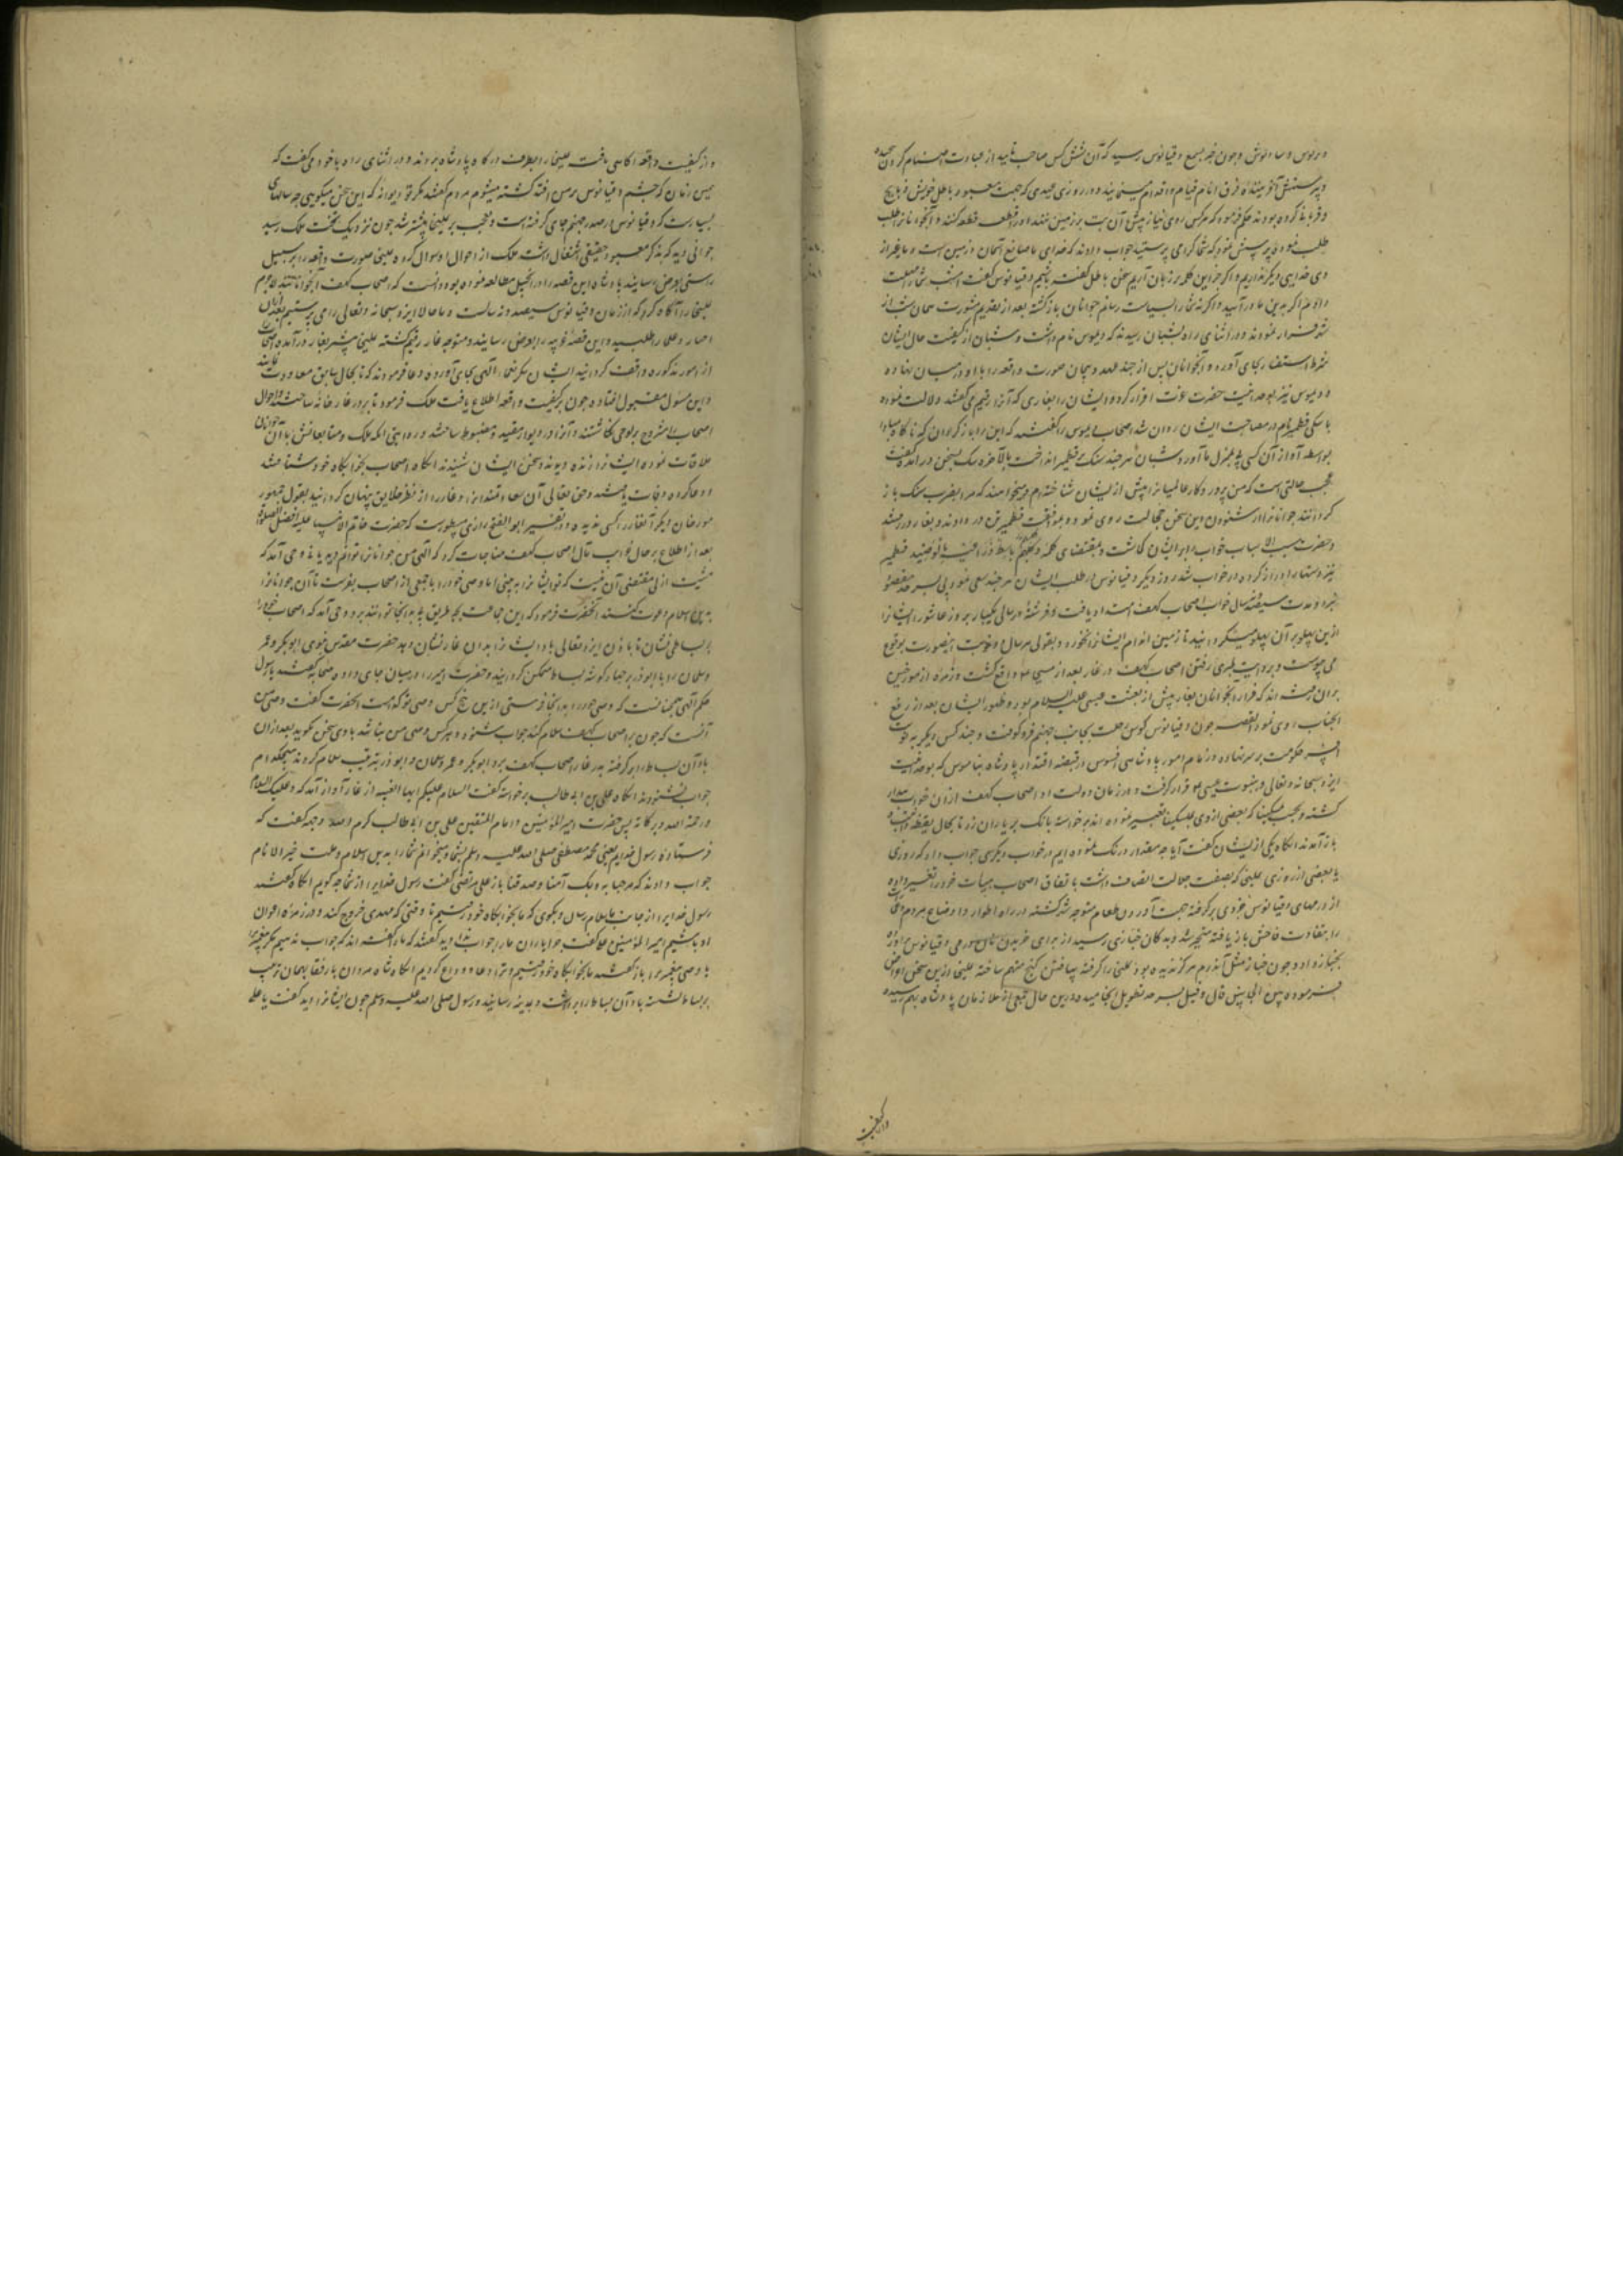 و برنوس و سانوش و چون خبر بسمع دقیانوس رسید که آن شش کس صاحب تایید از عبادت اصنام گردن پیچیده
و بپرستش آفریننده فرق انام قیام و اقدام مینمایند در روزی عیدی که جهت معبود باطل خویش ذبایح
و قربانی کرده بودند حکم فرمود که هرکس روی نیاز پیش آن بت بر زمین ننهد او را قطعه قطعه کنند و آنجوانانرا طلب
طلب نموده پرسش نمود که شما کرا می پرستید جواب دادند که خدای ما صانع آسمان و زمین است و ما بغیر از
وی خدایی دیگر نداریم و اگر جز این کلمه بر زبان آریم سخن باطل گفته باشیم دقیانوس گفت امشب شما را مهلت
دادم اگر بدین ما درآمدید و اگر نه شما را بسیاست رسانم جوانان بازگشته بعد از تقدیم مشورت همان شب از
شهر فرار نمودند و در اثنای راه بشبان رسیدند که دیموس نام داشت و شبان از کیفیت حال ایشان
شرط استفسار بجای آورده و آنجوانان پس از چند عهد و پیمان صورت واقعه را با او در میان نهادند
و دیموس نیز بوحدانیت حضرت عزت اقرار کرده ایشان را بغاری که آنرا رقیم می گفتند دلالت نموده
با سگی قطمیر نام در مصاحبت ایشان روان شد اصحاب دیموس را گفتند که این را باز گردان که ناگاه مبادا
بواسطه آواز آن کسی پی بمنزل ما آورد شبان هر چند سنگ بر قطمیر انداخت بالآخره سگ بسخن درآمد گفت
عجب حالتی است که من پروردگار عالمیانرا پیش از ایشان شناخته‌ام و میخواهند که مرا بضرب سنگ باز
گردانند جوانانرا از شنودن این سخن خجالت روی نمود و بموافقت قطمیر تن در دادند و بغار در رفتند
و حضرت مسبب الاسباب خواب بر ایشان گماشت و بمقتضای کلمه و کلبهم باسط ذراعیه بالوصید قطمیر
نیز دستها را دراز کرده در خواب شد روز دیگر دقیانوس در طلب ایشان هر چند سعی نمود پی بسرحد مقصود
نبرد و مدت سیصد و نه سال خواب اصحاب کهف امتداد یافت و فرشته در سالی یکبار بروز عاشورا ایشانرا
ازین پهلو بر آن پهلو میگردانید تا زمین اندام ایشانرا نخورد و بقولی هر سال دو نوبت اینصورت بوقوع
می پیوست و بروایت طبری رفتن اصحاب کهف در غار بعد از مسیح واقع گشت و زمره از مورخین
بر آن رفته اند که فرار آنجوانان بغار پیش از بعثت عیسی علیه السلام بود و ظهور ایشان بعد از رفع
آنجناب روی نمود القصه چون دقیانوس کوس رحلت بجانب جهنم فرو کوفت و چند کس دیگر به نوبت
افسر حکومت بر سر نهاده زمام امور پادشاهی افسوس در قبضه اقتدار پادشاه بناموس که بوحدانیت
ایزد سبحانه و تعالی و نبوت عیسی قرار گرفت و در زمان دولت او اصحاب کهف از آن خواب بیدار
گشته و بحسب یملیخا که بعضی از وی بملیکسینا تعبیر نموده اند برخواسته بانگ بر یاران زد تا بحال یقظه
باز آمدند انگاه یکی از ایشان گفت آیا چه مقدار درنگ نموده ایم در خواب دیگری جواب داد که روزی
یا بعضی از روزی یملیخا که بصفت جلالت اتصاف داشت باتفاق اصحاب هیأت خود را تغییر داده
از درمهای دقیانوس جزوی برگرفته جهت آوردن طعام متوجه شهر گشته در راه اطوار و اوضاع مردم
را بتفاوت فاحش باز یافته متحیر شد و بدکان خبازی رسید از برای خریدن نان درمی دقیانوسی
بخباز داد و چون خباز مثل آن درم هرگز ندیده بود یملیخا را گرفته بیافتن گنج متهم ساخته یملیخا ازین سخن اعراض
فرموده بین الجانبین قال و قیل بسرحد تطویل انجامید درین حال جمعی از ملازمان پادشاه بهم رسیده
و از کیفیت
و از کیفیت واقعه آگاهی یافت یملیخا را بطرف درگاه پادشاه بردند و در اثنای راه با خود می گفت که
همین زمان که چشم دقیانوس بر من افتد کشته میشوم مردم گفتند مگر تو دیوانه که این سخن میگویی چه سالهای
بسیارست که دقیانوس در صدر جهنم جای گرفته است و تعجب بر یملیخا بیشتر شد چون نزدیک تخت ملک رسید
جوانی دید که بذکر معبود حقیقی اشتغال داشت ملک از احوال او سوال کرده یملیخا صورت واقعه را بر سبیل
راستی بعرض رسانید پادشاه این قصه را در انجیل مطالعه نموده بود و دانست که اصحاب کهف آنجوانانند لاجرم
یملیخا را آگاه کرد که از زمان دقیانوس سیصد و نه سالست و ما حالا ایزد سبحانه و تعالی را می پرستیم بعد از آن
احبار و علما را طلبید و این قصه غریبه را بعرض رسانید و متوجه غار رقیم گشته یملیخا پیشتر بغار درآمده اصحاب
از امور مذکوره واقف گردانید ایشان شکر نعماء الهی بجای آورده دعا فرمودند که تا بحال سابق معاودت
و این مسول مقبول افتاده چون بر کیفیت واقعه اطلاع یافت ملک فرمود تا بر در غار خانه ساختند و احوال
اصحاب را مشروح بر لوحی نگاشتند و آنرا در دیوار مقید و مضبوط ساختند و روایتی آنکه ملک و متابعانش با آن جوانان
ملاقات نموده ایشانرا زنده دیدند و سخن ایشان شنیدند آنگاه اصحاب بخوابگاه خود شتافتند
و دعا کرده وفات یافتند و حق تعالی آن سعادتمندانرا در غار از نظر خلایق پنهان گردانید بقول جمهور
مورخان دیگر آنغار را کسی ندیده و در تفسیر ابو الفتح رازی مسطورست که حضرت خاتم الانبیا علیه افضل الصلوة
بعد از اطلاع بر حال خواب اصحاب کهف مناجات کرد که الهی من جوانانرا توانم دید یا نه وحی آمد که
مشیت ازلی مقتضی آن نیست که تو ایشانرا به بینی اما وصی خود را با جمعی از اصحاب بفرست تا آن جوانانرا
بدین اسلام دعوت کنند آنحضرت فرمود که این جماعت بچه طریق بدانجا توانند برد وحی آمد که اصحاب خود را
بر بساطی نشان تا باذن ایزد تعالی باد ایشانرا بدان غار رساند و بعد حضرت مقدس نبوی ابوبکر و عمر
و سلمان را با ابوذر بر چهار گوشه بساط متمکن گردانید و حضرت امیر را در میان جای داده صحابه گفتند یا رسول
حکم الهی چنانست که وصی خود را بدانجا فرستی ازین پنج کس وصی تو کدام است آنحضرت گفت وصی من
آنست که چون بر اصحاب کهف سلام کند جواب شنود و هر کس وصی من نباشد با وی سخن نگویند بعد از آن
باد آن بساط را برگرفته بدر غار اصحاب کهف برد ابوبکر و عمر و سلمان و ابوذر بترتیب سلام کردند هیچکدام
جواب نشنودند آنگاه علی بن ابی طالب برخواسته گفت السلام علیکم ایها الفتیه از غار آواز آمد که و علیک السلام
و رحمة الله و برکاته پس حضرت امیر المؤمنین و امام المتقین علی بن ابی طالب کرم الله وجهه گفت که
فرستاده رسول خدایم یعنی محمد مصطفی صلی الله علیه وسلم بشما و میخوانم شما را بدین اسلام و ملت خیر الانام
جواب دادند که مرحبا به و بک آمنا و صدقنا باز علی مرتضی گفت رسول خدایرا از شما چه گویم آنگاه گفتند
رسول خدایرا از جانب ما سلام رسان و بگوی که ما بخوابگاه خود رفتیم تا وقتی که مهدی خروج کند و در زمره اعوان
او باشیم امیر المؤمنین گفت چرا یاران مرا جواب ندادید گفتند که ما را گفته اند که جواب ندهیم مگر پیغمبر
یا وصی پیغمبر را باز گفتند ما بخوابگاه خود رفتیم و ترا دعا و وداع کردیم آنگاه شاه مردان با رفقا بهمان ترتیب
بر بساط نشست باد آن بساط را برداشت و بمدینه رسانید و رسول صلی الله علیه وسلم چون ایشانرا دید گفت یا علی